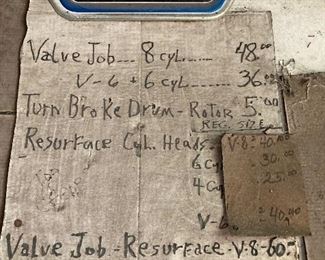 Valve Job --- 8 cyl ------ 48.00
V-6 + 6 cyl ------ 36.00
Turn Broke Drum - Rotor 5.00
REG. SIZE
Resurface Cyl. Heads - V-8 = 40.00
6 Cyl 30.00
4 Cyl 25.00
V-6 = 40.00
Valve Job - Resurface - V-8-60.